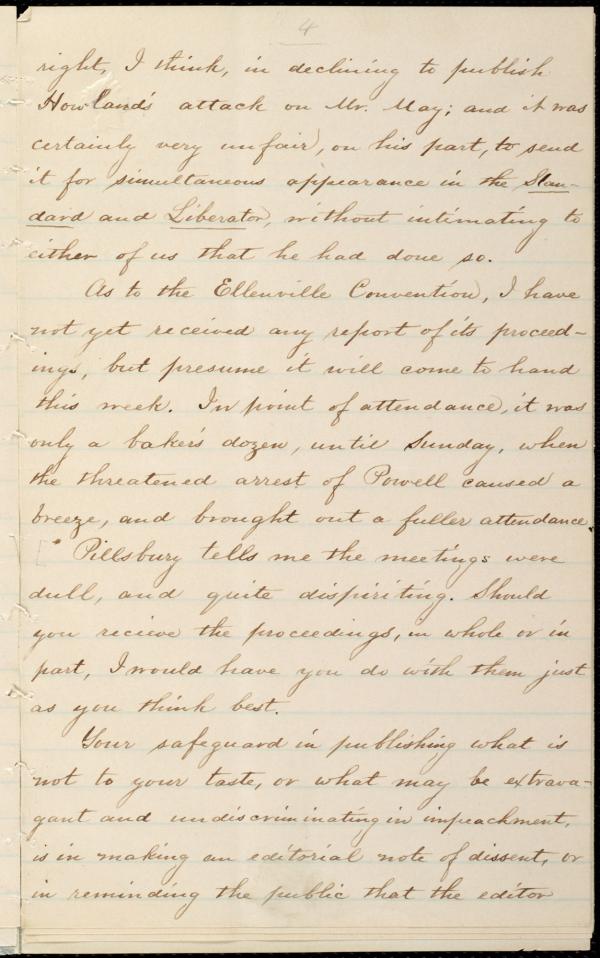 4
right, I think, in declining to publish
Howland's attack on Mr. May; and it was
certainly very unfair, on his part, to send
it for simultaneous appearance in the Stan-
dard and Liberator, without intimating to
either of us that he had done so.
As to the Ellenville Convention, I have
not yet received any report of its proceed-
ings, but presume it will come to hand
this week. In point of attendance, it was
only a baker's dozen, until Sunday, when
the threatened arrest of Powell caused a
breeze, and brought out a fuller attendance.
[" Pillsbury tells me the meetings were
dull, and quite dispiriting. Should
you recieve the proceedings, in whole or in
part, I would have you do with them just
as you think best.
Your safeguard in publishing what is
not to your taste, or what may be extrava-
gant and undiscriminating in impeachment,
is in making an editorial note of dissent, or
in reminding the public that the editor